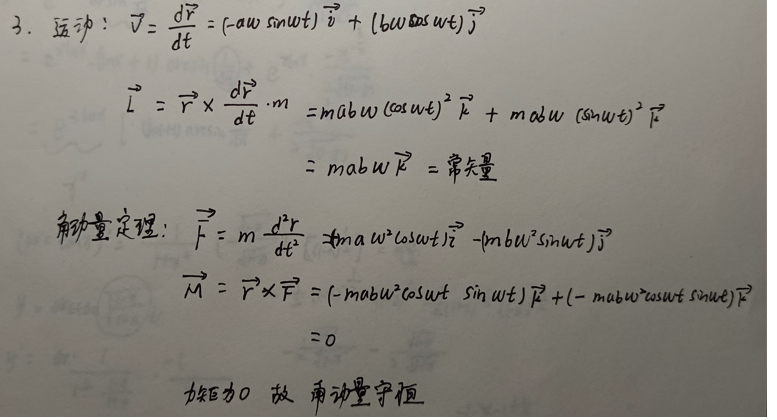 3. 运动: v⃗ = dr⃗/dt = (-aw sinwt) i⃗ + (bw coswt) j⃗
L⃗ = r⃗ × dr⃗/dt · m = mabw (coswt)² k⃗ + mabw (sinwt)² k⃗
= mabw k⃗ = 常矢量
角动量定理: F⃗ = m d²r/dt² = (-ma w²coswt) i⃗ - (mbw²sinwt) j⃗
M⃗ = r⃗ × F⃗ = (-mabw²coswt sinwt) k⃗ + (- mabw²coswt sinwt) k⃗
= 0
力矩为0 故 角动量守恒